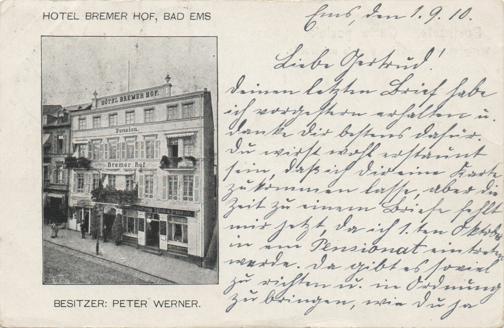 HOTEL BREMER HOF, BAD EMS
HÔTEL BREMER HOF.
Pension.
Bremer hof
BESITZER: PETER WERNER.
Ems, den 1.9.10.
Liebe Gertrud!
Deinen letzten Brief habe
ich vorgestern erhalten u.
danke dir bestens dafür.
Du wirst wohl erstaunt
sein, daß ich dir eine Karte
zukommen lasse, aber die
Zeit zu einem Briefe fehlt
mir jetzt, da ich 1. ten Oktober
in ein Pensionat eintreten
werde. Da gibt es soviel
zu richten u. in Ordnung
zu bringen, wie du ja